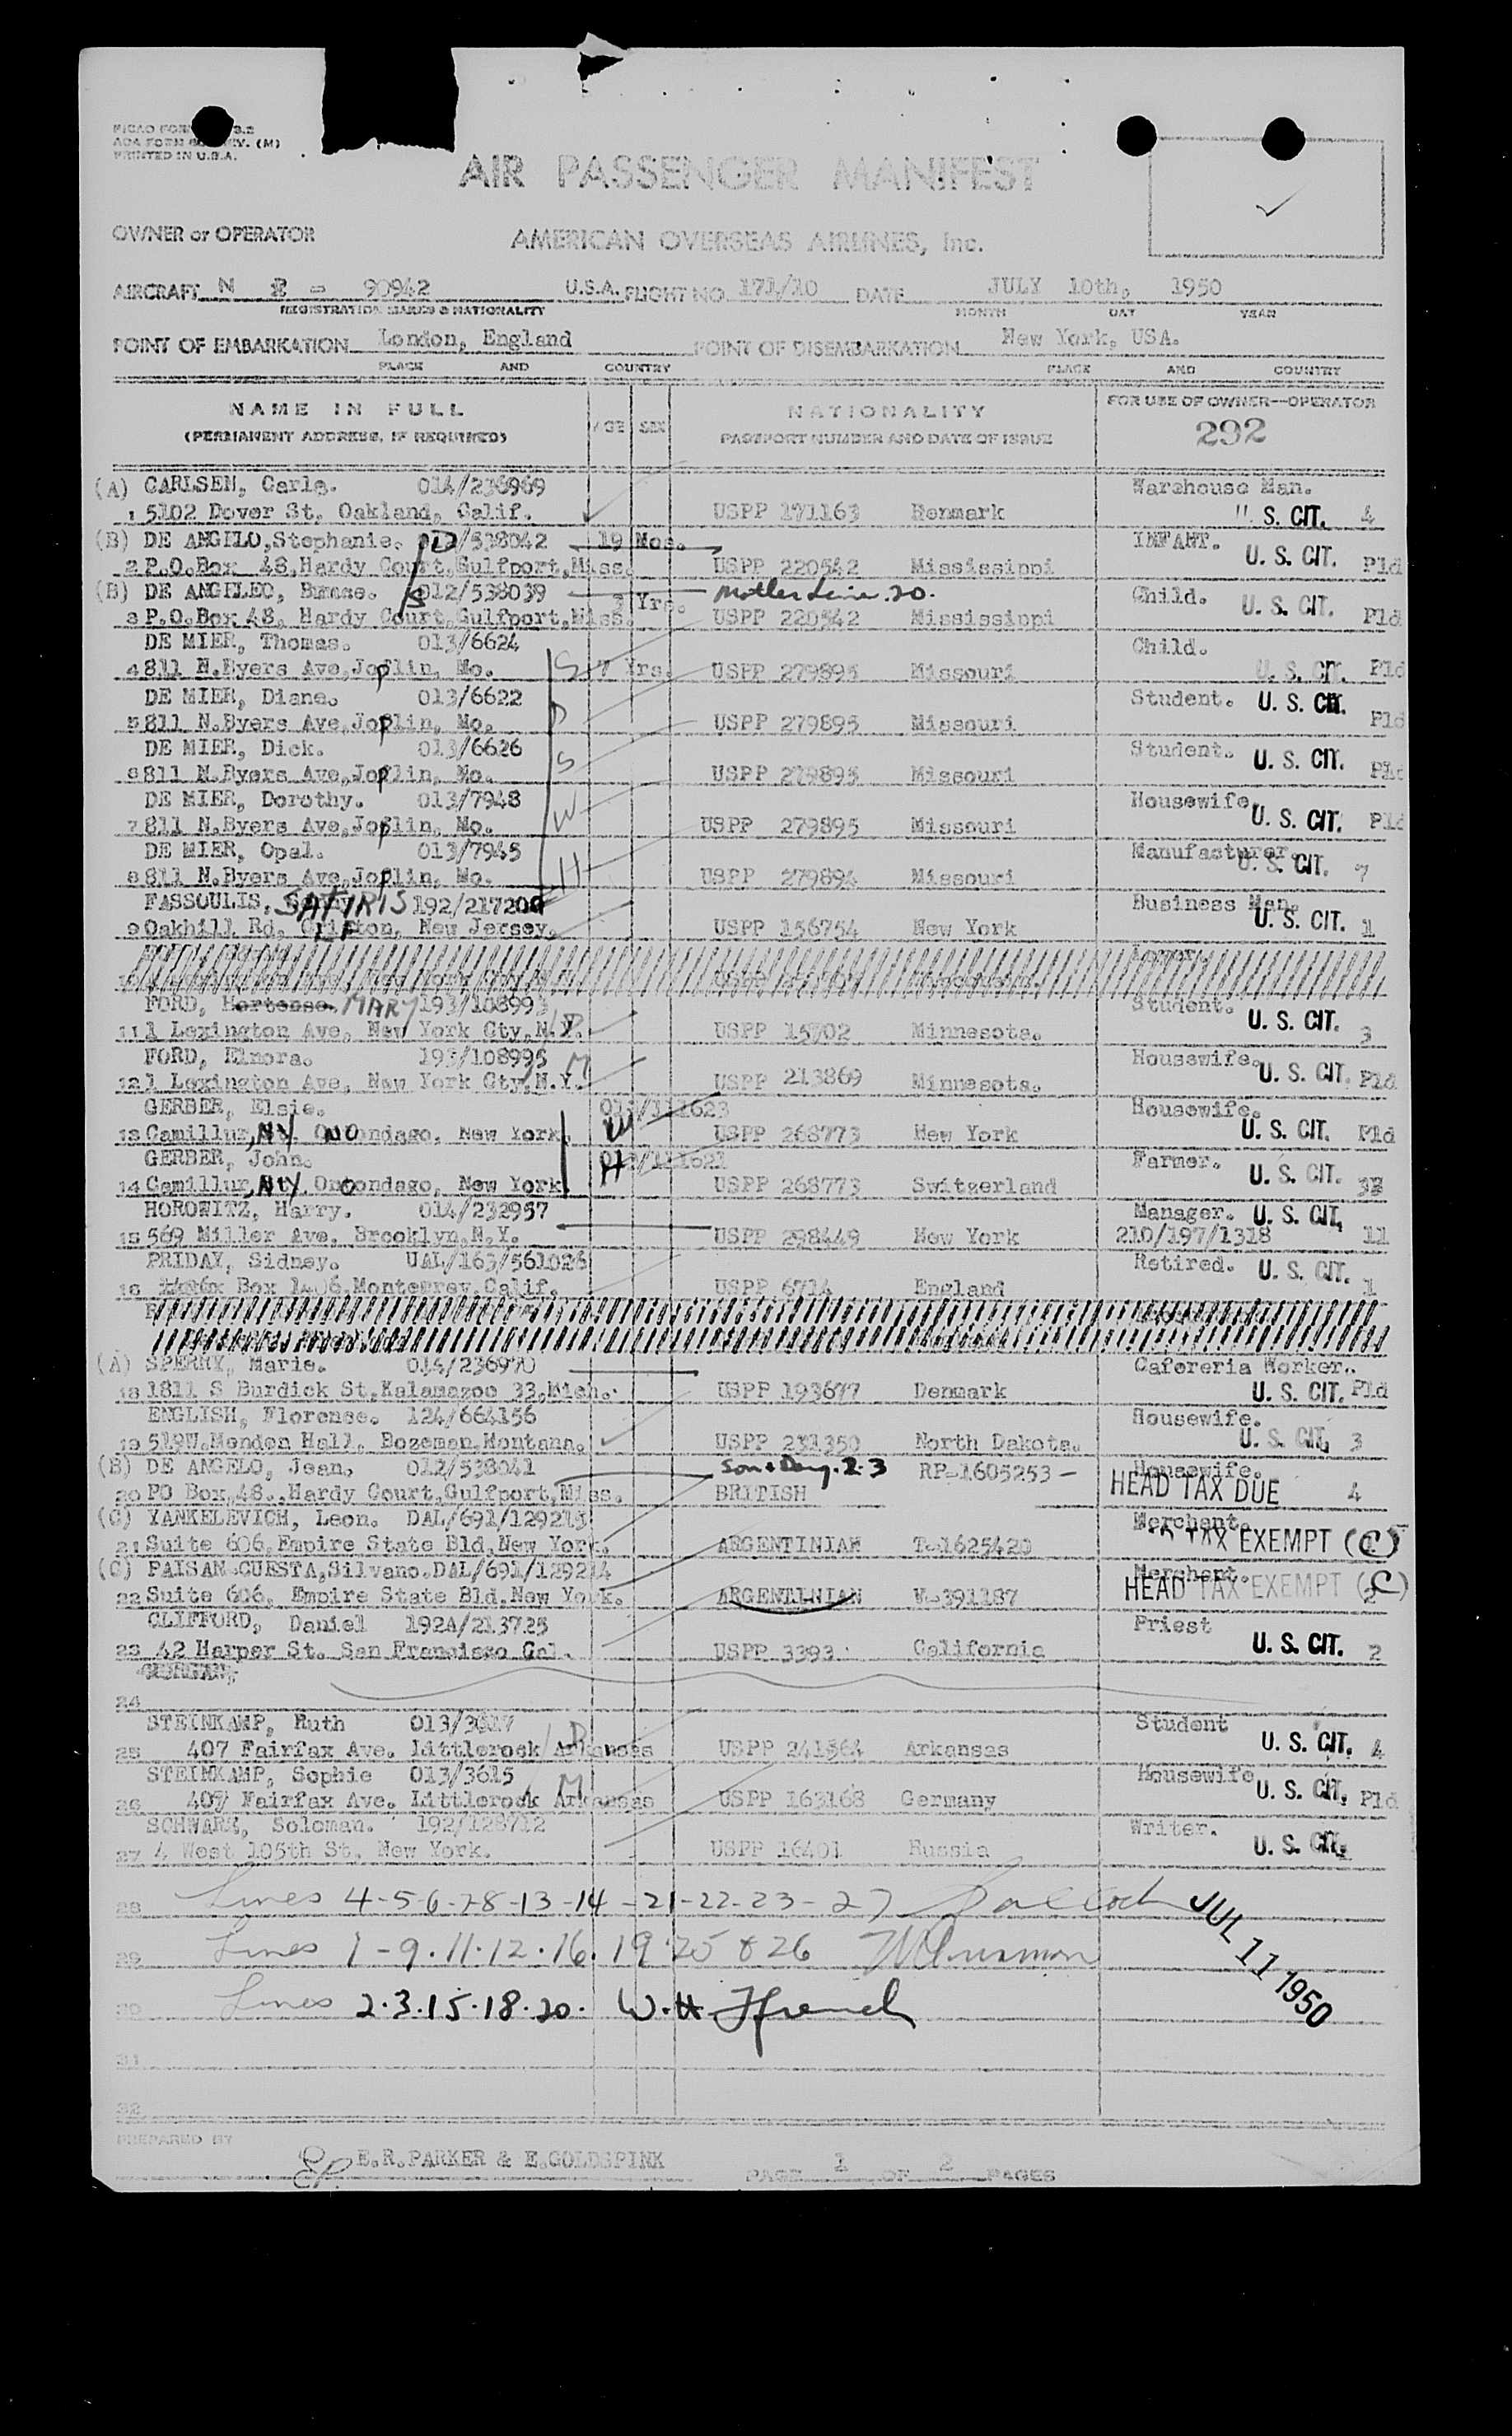 PRINTED IN U.S.A.
AIR PASSENGER MANIFEST
OWNER or OPERATOR AMERICAN OVERSEAS AIRLINES, Inc.
AIRCRAFT N - 90942 U.S.A. FLIGHT NO. 171/10 DATE JULY 10th, 1950
REGISTRATION MARKS & NATIONALITY MONTH DAY YEAR
POINT OF EMBARKATION London, England POINT OF DISEMBARKATION New York, USA.
PLACE AND COUNTRY PLACE AND COUNTRY
NAME IN FULL AGE SEX NATIONALITY FOR USE OF OWNER—OPERATOR
(PERMANENT ADDRESS, IF REQUIRED) PASSPORT NUMBER AND DATE OF ISSUE 292
(A) CARLSEN, Carla. 014/236969 Warehouse Man.
1 5102 Dover St. Oakland, Calif. USPP 171163 Denmark U. S. CIT. 4
(B) DE ANGILO, Stephanie. D 012/538042 19 Mos. INFANT.
2 P.O.Box 48,Hardy Court,Gulfport,Miss. USPP 220542 Mississippi U. S. CIT. Pld
(B) DE ANGELEO, S 012/538039 Yrs. Mother Line.20. Child.
3 P.O.Box 48, Hardy Court,Gulfport,Miss. USPP 220542 Mississippi U. S. CIT. Pld
DE MIER, Thomas. 013/6624 Child.
4 811 N.Byers Ave,Joplin, Mo. S 7 Yrs. USPP 279895 Missouri U. S. CIT. Pld
DE MIER, Diana. 013/6622 Student. U. S. CIT.
5 811 N.Byers Ave,Joplin, Mo. D USPP 279895 Missouri Pld
DE MIER, Dick. 013/6626 Student. U. S. CIT.
6 811 N.Byers Ave,Joplin, Mo. S USPP 279895 Missouri Pld
DE MIER, Dorothy. 013/7948 Housewife.
7 811 N.Byers Ave,Joplin, Mo. W USPP 279895 Missouri U. S. CIT. Pld
DE MIER, Opal. 013/7945 Manufacturer.
8 811 N.Byers Ave,Joplin, Mo. H USPP 279894 Missouri U. S. CIT. 7
FASSOULIS, SATIRIS 192/217200 Business Man.
9 Oakhill Rd, Clifton, New Jersey. USPP 156754 New York U. S. CIT. 1
FORD, Hortense. MARY 193/108993 Student.
11 1 Lexington Ave, New York Cty,N.Y. D USPP 15702 Minnesota. U. S. CIT. 3
FORD, Elnora. 193/108995 M Housewife.
12 1 Lexington Ave, New York Cty,N.Y. USPP 213869 Minnesota. U. S. CIT. Pld
GERBER, Elsie. 013/111623 Housewife.
13 Camillur, NY Onondago, New York. W USPP 268773 New York U. S. CIT. Pld
GERBER, John. 013/111621 Farmer.
14 Camillur, NY, Onondago, New York H USPP 268773 Switzerland U. S. CIT.
HOROWITZ, Harry. 014/232957 Manager. U. S. CIT.
15 569 Miller Ave. Brooklyn,N.Y. USPP 298449 New York 210/197/1318 11
PRIDAY, Sidney. UAL/163/561026 Retired.
16 Box 1406,Monterey,Calif. USPP 6714 England U. S. CIT. 1
(A) SPERRY, Marie. 014/236970 Cafereria Worker.
18 1811 S Burdick St,Kalamazoo 33,Mich. USPP 193677 Denmark U. S. CIT. Pld
ENGLISH, Florense. 124/664156 Housewife.
19 519W.Mendon Hall. Bozeman,Montana. USPP 231350 North Dakota. U. S. CIT. 3
(B) DE ANGELO, Jean. 012/538041 Son & Daug. 2.3 RP-1605253 - Housewife.
20 PO Box,48.,Hardy Court,Gulfport,Miss. BRITISH HEAD TAX DUE 4
(C) YANKELEVICH, Leon. DAL/691/129213 Merchant.
21 Suite 606,Empire State Bld,New York. ARGENTINIAN T-1625420 TAX EXEMPT (C)
(C) PAISAN CUESTA,Silvano.DAL/691/129214 Merchant.
22 Suite 606, Empire State Bld,New York. ARGENTINIAN W-391187 HEAD TAX EXEMPT (C)
CLIFFORD, Daniel 192A/213725 Priest
23 42 Harper St. San Francisco Cal. USPP 3393 California U. S. CIT. 2
24
STEINKAMP, Ruth Student
25 407 Fairfax Ave. Littlerock Arkansas D USPP 241564 Arkansas U. S. CIT. 4
STEINKAMP, Sophie 013/3615 M Housewife
26 407 Fairfax Ave. Littlerock Arkansas USPP 163168 Germany U. S. CIT. Pld
SCHWARZ, Soloman. 192/128712 Writer.
27 4 West 105th St. New York. USPP 16401 Russia U. S. CIT.
28 Lines 4-5-6-7-8-13-14-21-22-23-27
JUL 11 1950
29 Lines 1-9.11.12.16.19.25 & 26
30 Lines 2.3.15.18.20. W.H. Ffrench
31
32
PREPARED BY E.R.PARKER & E.GOLDSPINK PAGE 1 OF 2 PAGES